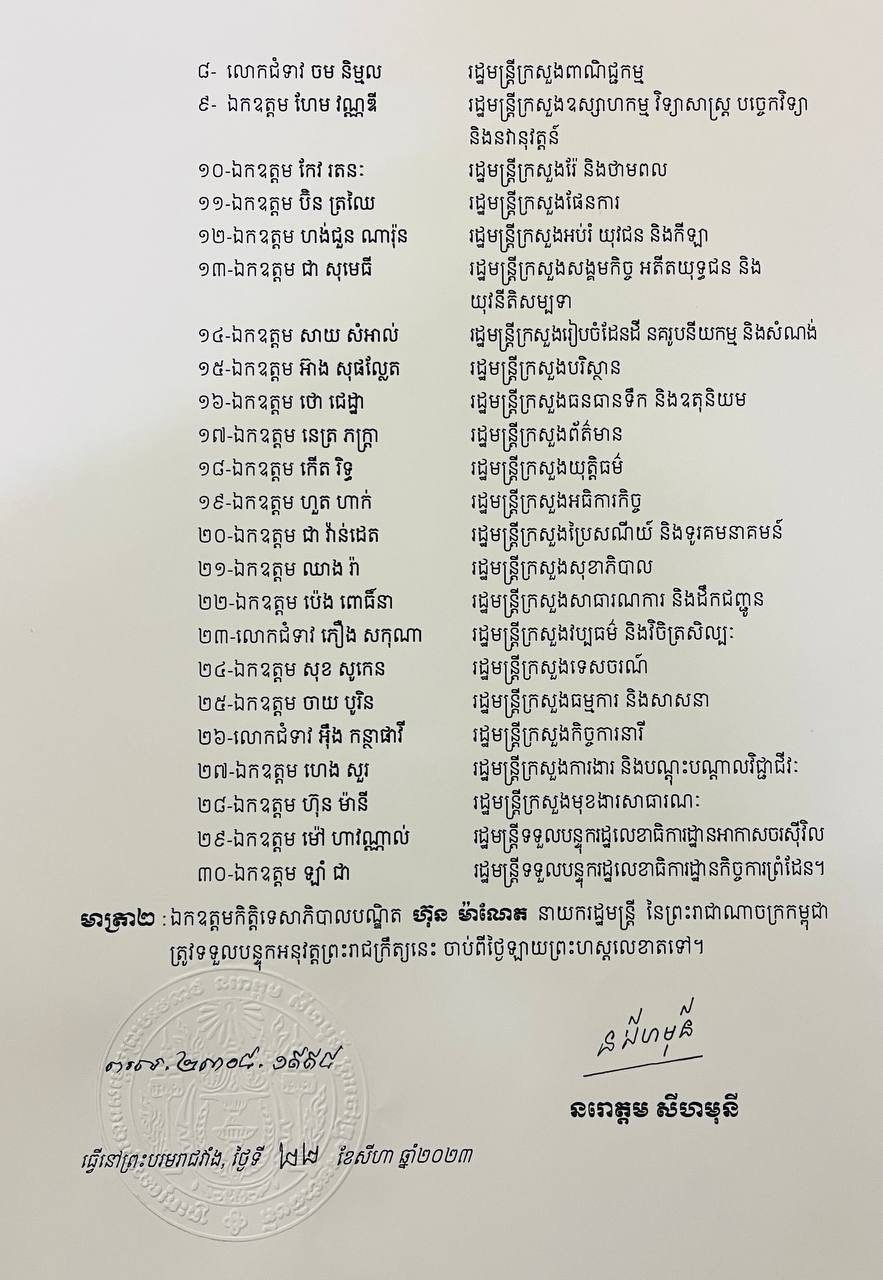 ៨- លោកជំទាវ ចម និម្មល រដ្ឋមន្ត្រីក្រសួងពាណិជ្ជកម្ម
៩- ឯកឧត្តម ហែម វណ្ណឌី រដ្ឋមន្ត្រីក្រសួងឧស្សាហកម្ម វិទ្យាសាស្ត្រ បច្ចេកវិទ្យា
និងនវានុវត្តន៍
១០-ឯកឧត្តម កែវ រតនៈ រដ្ឋមន្ត្រីក្រសួងរ៉ែ និងថាមពល
១១-ឯកឧត្តម ប៊ិន ត្រឈៃ រដ្ឋមន្ត្រីក្រសួងផែនការ
១២-ឯកឧត្តម ហង់ជួន ណារ៉ុន រដ្ឋមន្ត្រីក្រសួងអប់រំ យុវជន និងកីឡា
១៣-ឯកឧត្តម ជា សុមេធី រដ្ឋមន្ត្រីក្រសួងសង្គមកិច្ច អតីតយុទ្ធជន និង
យុវនីតិសម្បទា
១៤-ឯកឧត្តម សាយ សំអាល់ រដ្ឋមន្ត្រីក្រសួងរៀបចំដែនដី នគរូបនីយកម្ម និងសំណង់
១៥-ឯកឧត្តម អ៊ាង សុផល្លែត រដ្ឋមន្ត្រីក្រសួងបរិស្ថាន
១៦-ឯកឧត្តម ថោ ជេដ្ឋា រដ្ឋមន្ត្រីក្រសួងធនធានទឹក និងឧតុនិយម
១៧-ឯកឧត្តម នេត្រ ភក្ត្រា រដ្ឋមន្ត្រីក្រសួងព័ត៌មាន
១៨-ឯកឧត្តម កើត រិទ្ធ រដ្ឋមន្ត្រីក្រសួងយុត្តិធម៌
១៩-ឯកឧត្តម ហួត ហាក់ រដ្ឋមន្ត្រីក្រសួងអធិការកិច្ច
២០-ឯកឧត្តម ជា វ៉ាន់ដេត រដ្ឋមន្ត្រីក្រសួងប្រៃសណីយ៍ និងទូរគមនាគមន៍
២១-ឯកឧត្តម ឈាង រ៉ា រដ្ឋមន្ត្រីក្រសួងសុខាភិបាល
២២-ឯកឧត្តម ប៉េង ពោធិ៍នា រដ្ឋមន្ត្រីក្រសួងសាធារណការ និងដឹកជញ្ជូន
២៣-លោកជំទាវ ភឿង សកុណា រដ្ឋមន្ត្រីក្រសួងវប្បធម៌ និងវិចិត្រសិល្បៈ
២៤-ឯកឧត្តម សុខ សូកេន រដ្ឋមន្ត្រីក្រសួងទេសចរណ៍
២៥-ឯកឧត្តម ចាយ បូរិន រដ្ឋមន្ត្រីក្រសួងធម្មការ និងសាសនា
២៦-លោកជំទាវ អ៊ឹង កន្ថាផាវី រដ្ឋមន្ត្រីក្រសួងកិច្ចការនារី
២៧-ឯកឧត្តម ហេង សួរ រដ្ឋមន្ត្រីក្រសួងការងារ និងបណ្តុះបណ្តាលវិជ្ជាជីវៈ
២៨-ឯកឧត្តម ហ៊ុន ម៉ានី រដ្ឋមន្ត្រីក្រសួងមុខងារសាធារណៈ
២៩-ឯកឧត្តម ម៉ៅ ហាវណ្ណាល់ រដ្ឋមន្ត្រីទទួលបន្ទុករដ្ឋលេខាធិការដ្ឋានអាកាសចរស៊ីវិល
៣០-ឯកឧត្តម ឡាំ ជា រដ្ឋមន្ត្រីទទួលបន្ទុករដ្ឋលេខាធិការដ្ឋានកិច្ចការព្រំដែន។
មាត្រា២ : ឯកឧត្តមកិត្តិទេសាភិបាលបណ្ឌិត ហ៊ុន ម៉ាណែត នាយករដ្ឋមន្ត្រី នៃព្រះរាជាណាចក្រកម្ពុជា
ត្រូវទទួលបន្ទុកអនុវត្តព្រះរាជក្រឹត្យនេះ ចាប់ពីថ្ងៃឡាយព្រះហស្តលេខាតទៅ។
ន សីហមុនី
ព.រស. ២៣០៨. ១៩៩៨
នរោត្តម សីហមុនី
ធ្វើនៅព្រះបរមរាជវាំង, ថ្ងៃទី ២២ ខែសីហា ឆ្នាំ២០២៣